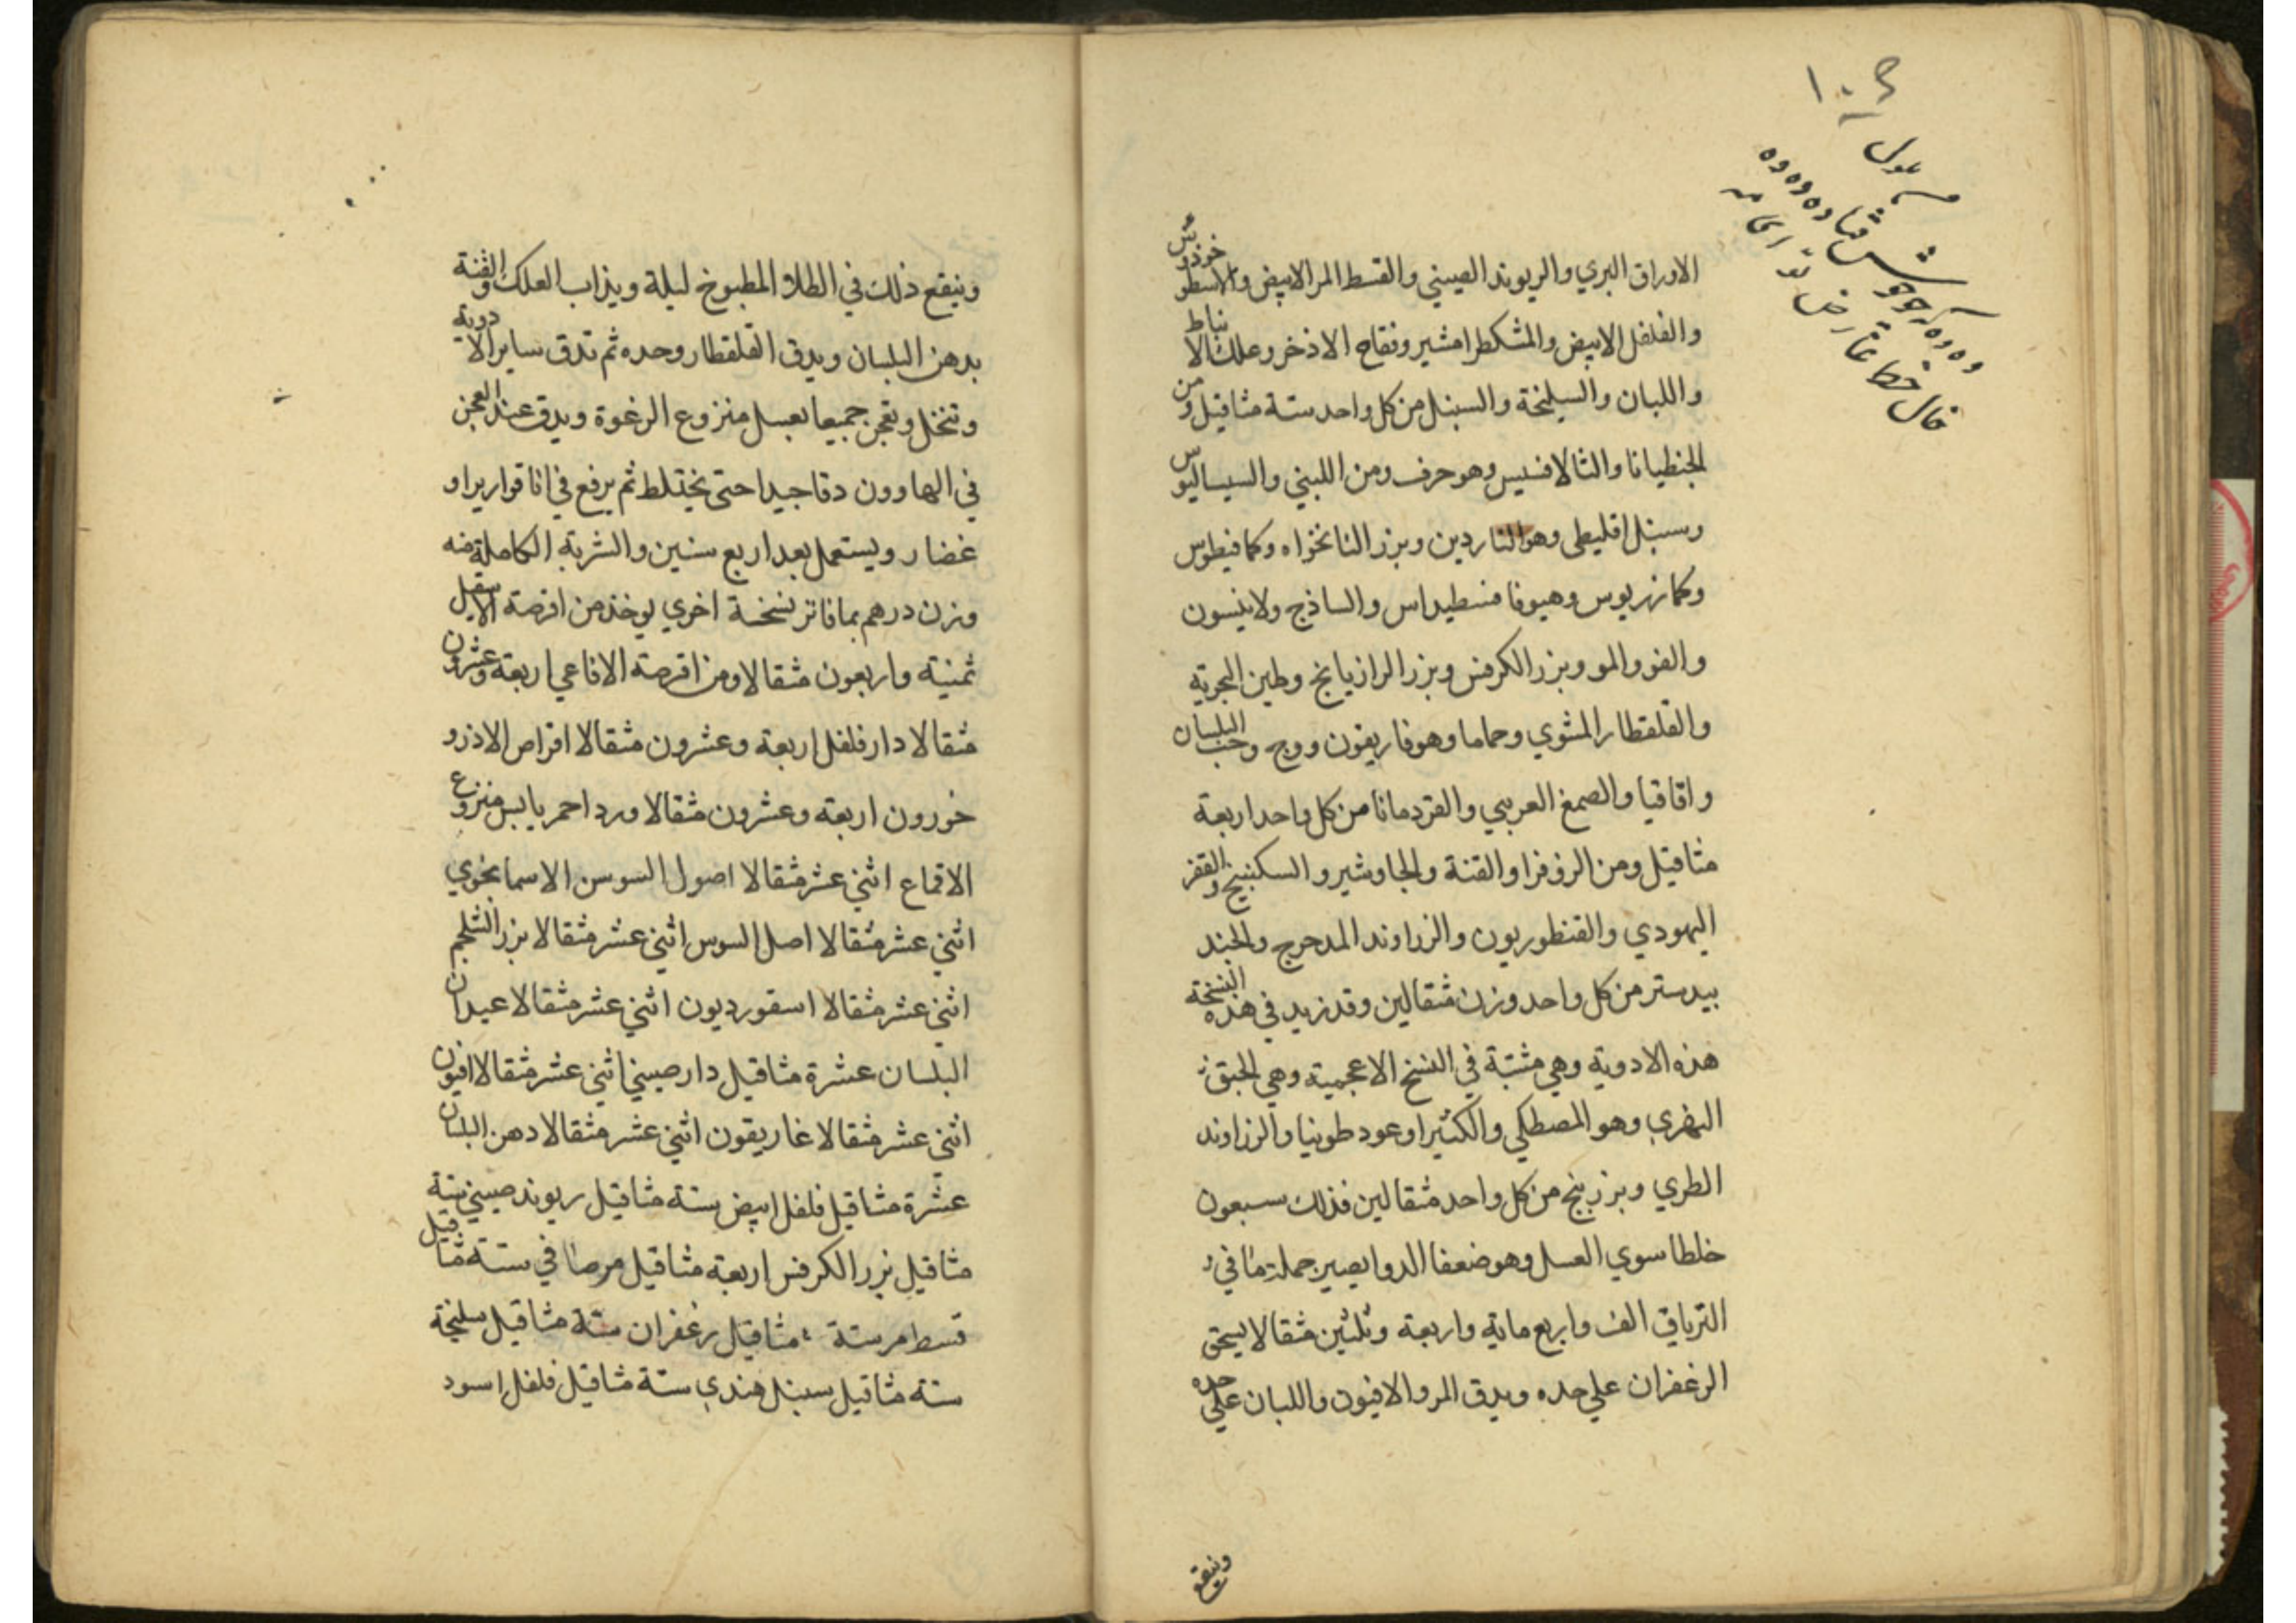 الاوراق البري والريوند الصيني والقسط المر الابيض والاسطو خودوس
والفلفل الابيض والمشكطرامشير وفقاح الاذخر وعلك الا نباط
واللبان والسليخة والسنبل من كل واحد ستة مثاقيل ومن
الجنطيانا والثالافسيس وهو حرف ومن اللبني والسيساليوس
وسنبل اقليطي وهو الناردين وبزر النانخواه وكمافيطوس
وكمازريوس وهيوفا فسطيداس والساذج ولانيسون
والفو والمو وبزر الكرفس وبزر الرازيانج وطين البحرية
والقلقطار المشوي وحماما وهوفاريقون ووج وحب البلسان
واقاقيا والصمغ العربي والقردمانا من كل واحد اربعة
مثاقيل ومن الزوفرا والقنة والجاوشير والسكبينج والقفر
اليهودي والقنطوريون والزراوند المدحرج والجند
بيدستر من كل واحد وزن مثقالين وقد زيد في هذه النسخة
هذه الادوية وهي مثبتة في النسخ الاعجمية وهي الحبق
النهري وهو المصطكي والكثيرا وعود طونيا والزراوند
الطري وبزر بنج من كل واحد مثقالين فذلك سبعون
خلطا سوي العسل وهو ضعفا الدوا يصير جملة ما في
الترياق الف واربع ماية واربعة وثلثين مثقالا يسحق
الزعفران علي حده ويدق المر والافيون واللبان علي حده
وينقع
وينقع ذلك في الطلا المطبوخ ليلة ويذاب العلك والقنة
بدهن البلسان ويدق القلقطار وحده ثم تدق ساير الا دوية
وتنخل وتعجن جميعا بعسل منزوع الرغوة ويدق عند العجن
في الهاوون دقا جيدا حتي يختلط ثم يرفع في انا قوارير او
غضار ويستعمل بعد اربع سنين والشربة الكاملة منه
وزن درهم بما فاتر نسخة اخري يوخذ من اقرصة الاسقيل
ثمنية واربعون مثقالا ومن اقرصة الافاعي اربعة وعشرون
مثقالا دار فلفل اربعة وعشرون مثقالا اقراص الاندرو
خورون اربعة وعشرون مثقالا ورد احمر يابس منزوع
الاقماع اثني عشر مثقالا اصول السوسن الاسمانجوي
اثني عشر مثقالا اصل السوس اثني عشر مثقالا بزر الشلجم
اثني عشر مثقالا اسقورديون اثني عشر مثقالا عيدان
البلسان عشرة مثاقيل دارصيني اثني عشر مثقالا افيون
اثني عشر مثقالا غاريقون اثني عشر مثقالا دهن البلسان
عشرة مثاقيل فلفل ابيض ستة مثاقيل ريوند صيني ستة
مثاقيل بزر الكرفس اربعة مثاقيل مر صافي ستة مثاقيل
قسط مر ستة مثاقيل زعفران ستة مثاقيل سليخة
ستة مثاقيل سنبل هندي ستة مثاقيل فلفل اسود